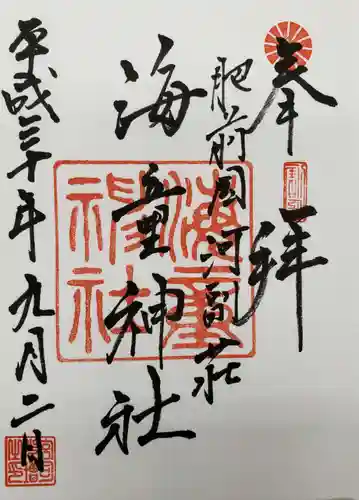 奉拝
肥前國河副荘
海童神社
平成三十年九月二日
海童神社